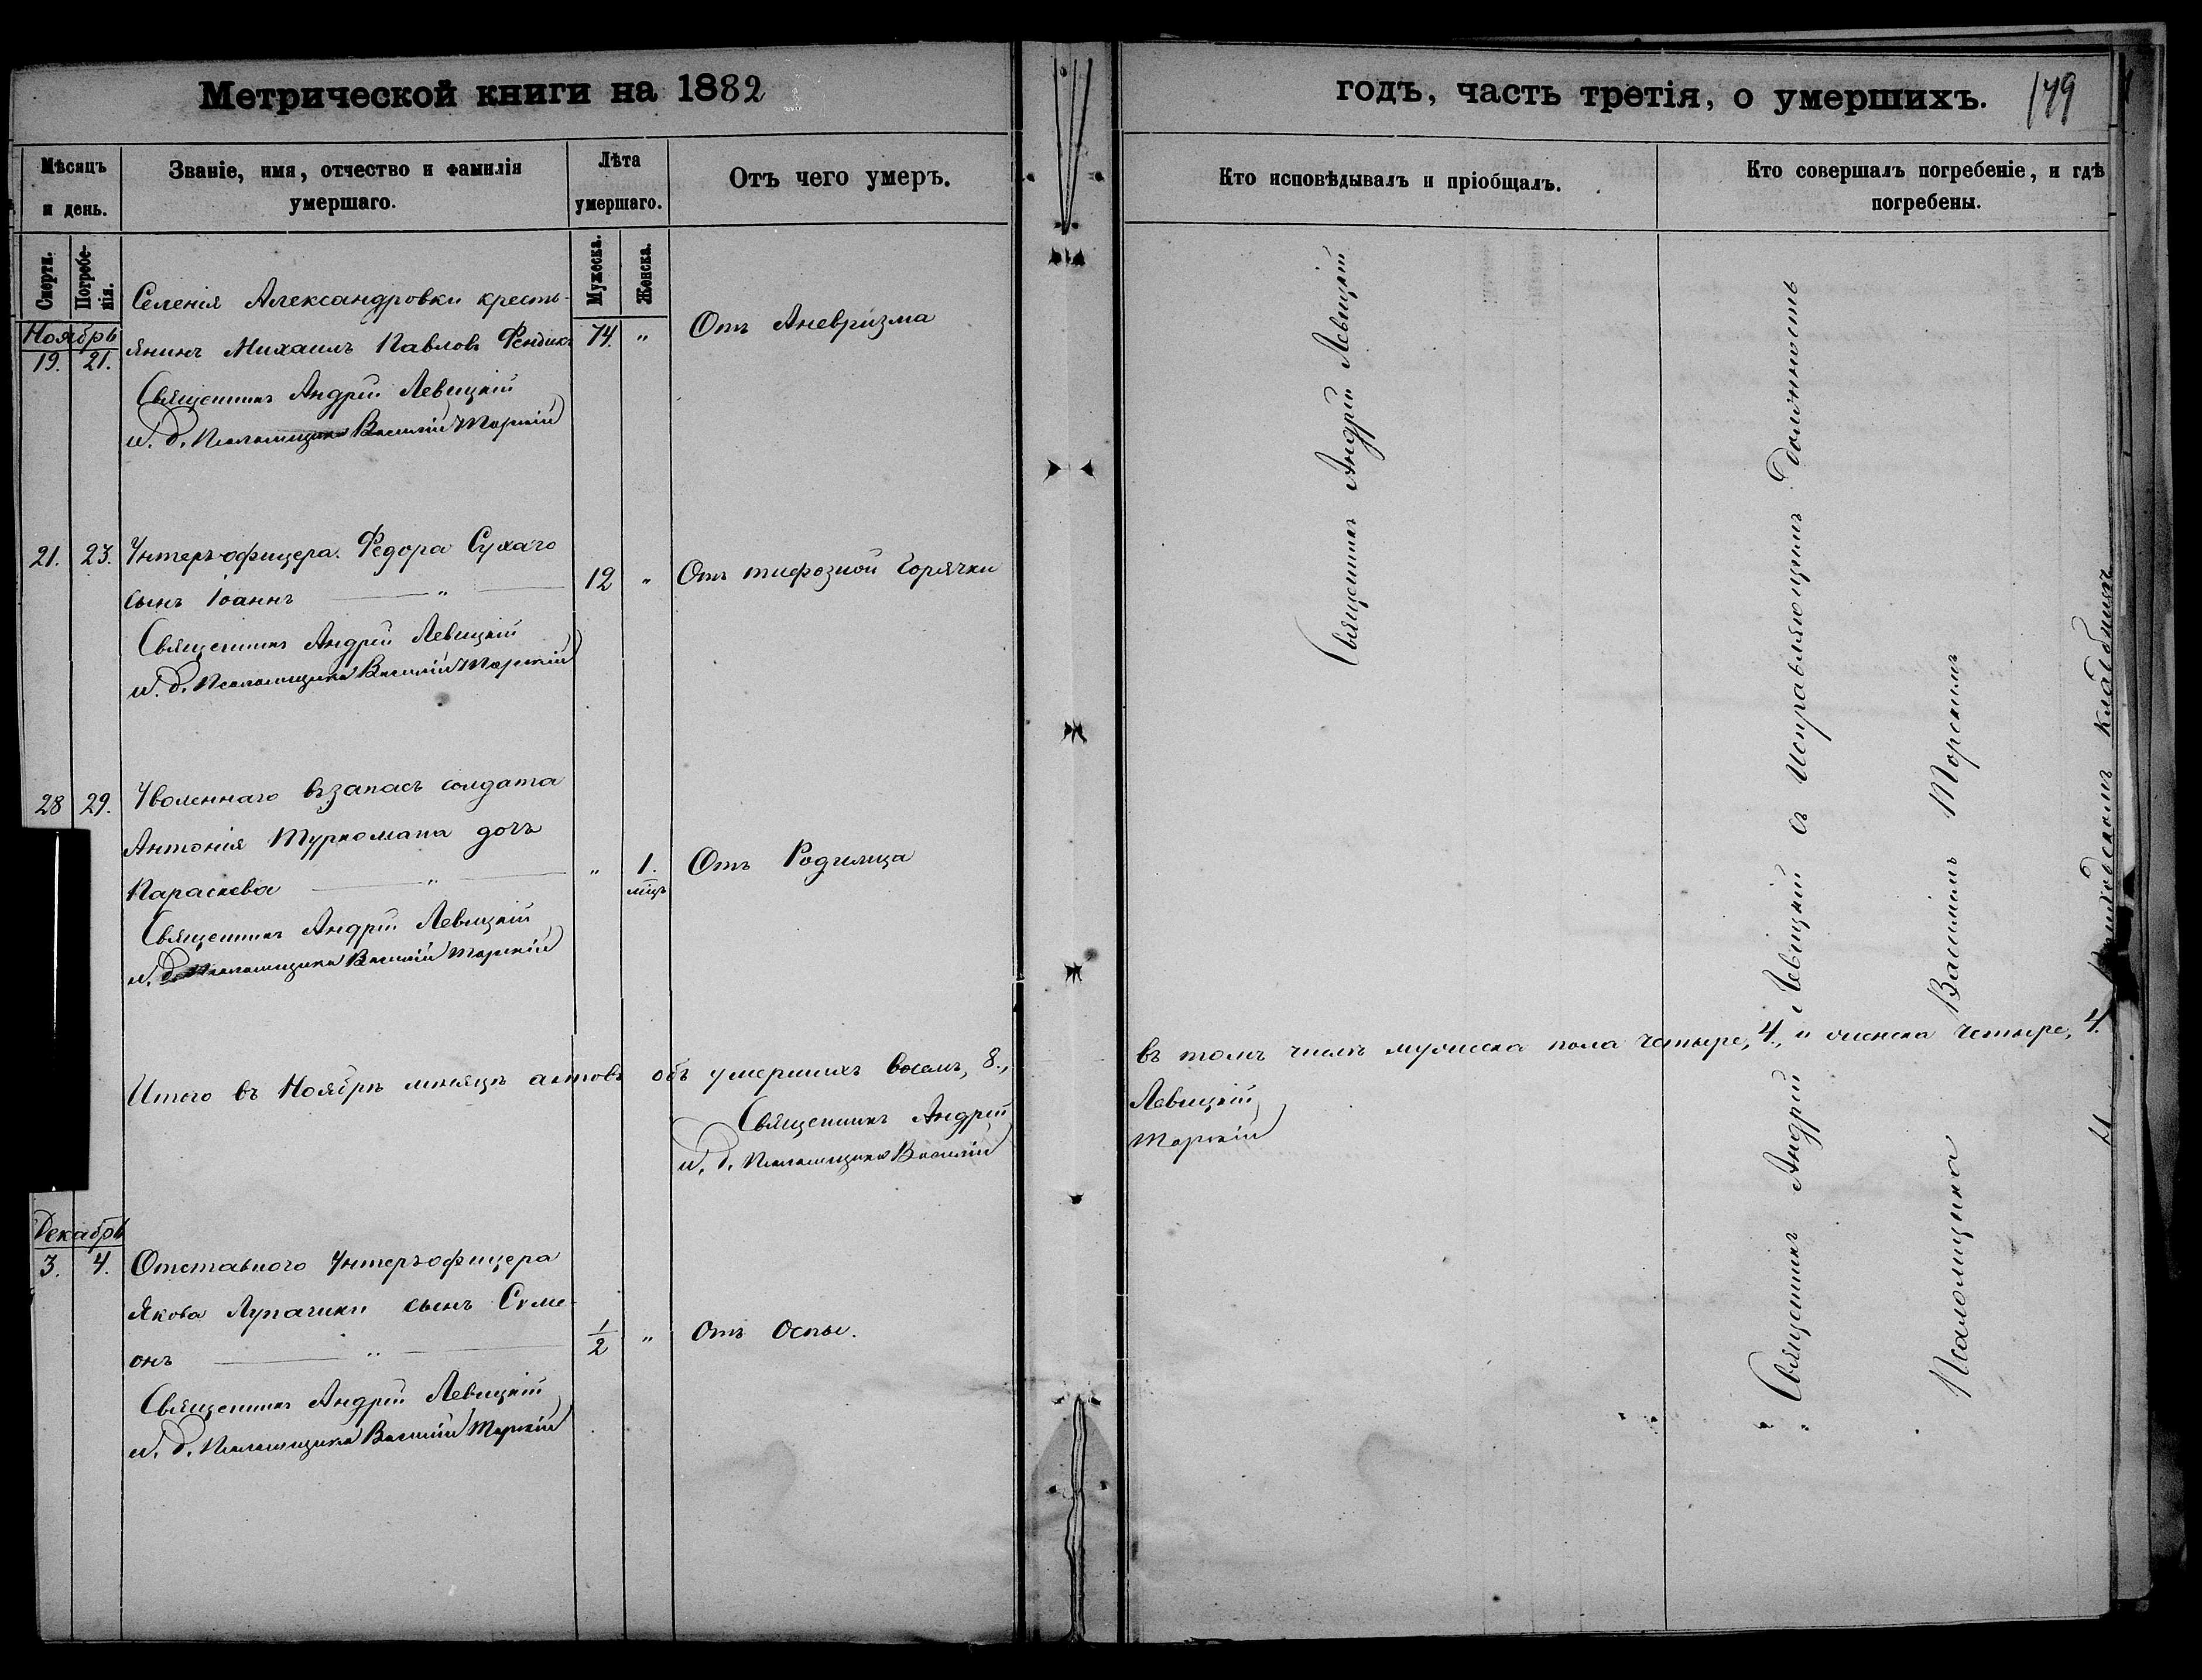 Метрической книги на 1882
годъ, часть третія, о умершихъ.
179
Мѣсяцъ и день.
Смерти.
Погребенія.
Званіе, имя, отчество и фамилія умершаго.
Лѣта умершаго.
Мужеска.
Женска.
Отъ чего умеръ.
Кто исповѣдывалъ и пріобщалъ.
Кто совершалъ погребеніе, и гдѣ погребены.
Ноябрь
19. 21.
Селенія Александровки кресть-
янинъ Михаилъ Павловъ
74. „ Отъ Аневризма
Священникъ Андрей Левицкій
и. д. Псаломщика Василій Торскій
21. 23. Унтеръ-офицера Федора Сухаго
сынъ Іоаннъ „
12 „ Отъ тифозной горячки
Священникъ Андрей Левицкій
и. д. Псаломщика Василій Торскій
28 29. Уволеннаго въ запасъ солдата
Антонія Туркомана дочь
Параскева „
„ 1. мѣц. Отъ Родимца
Священникъ Андрей Левицкій
и. д. Псаломщика Василій Торскій
Итого въ Ноябрѣ мѣсяцѣ актовъ объ умершихъ восемь, 8., въ томъ числѣ мужеска пола четыре, 4., и женска четыре, 4.
Священникъ Андрей Левицкій
и. д. Псаломщика Василій Торскій
Декабрь
3. 4. Отставного Унтеръ-офицера
Якова Лупачики сынъ Симе-
онъ „
1/2 „ Отъ Оспы.
Священникъ Андрей Левицкій
и. д. Псаломщика Василій Торскій
Священникъ Андрей Левицкій
Священникъ Андрей Левицкій съ Исправляющимъ должность
Псаломщика Василіемъ Торскимъ
кладбищѣ